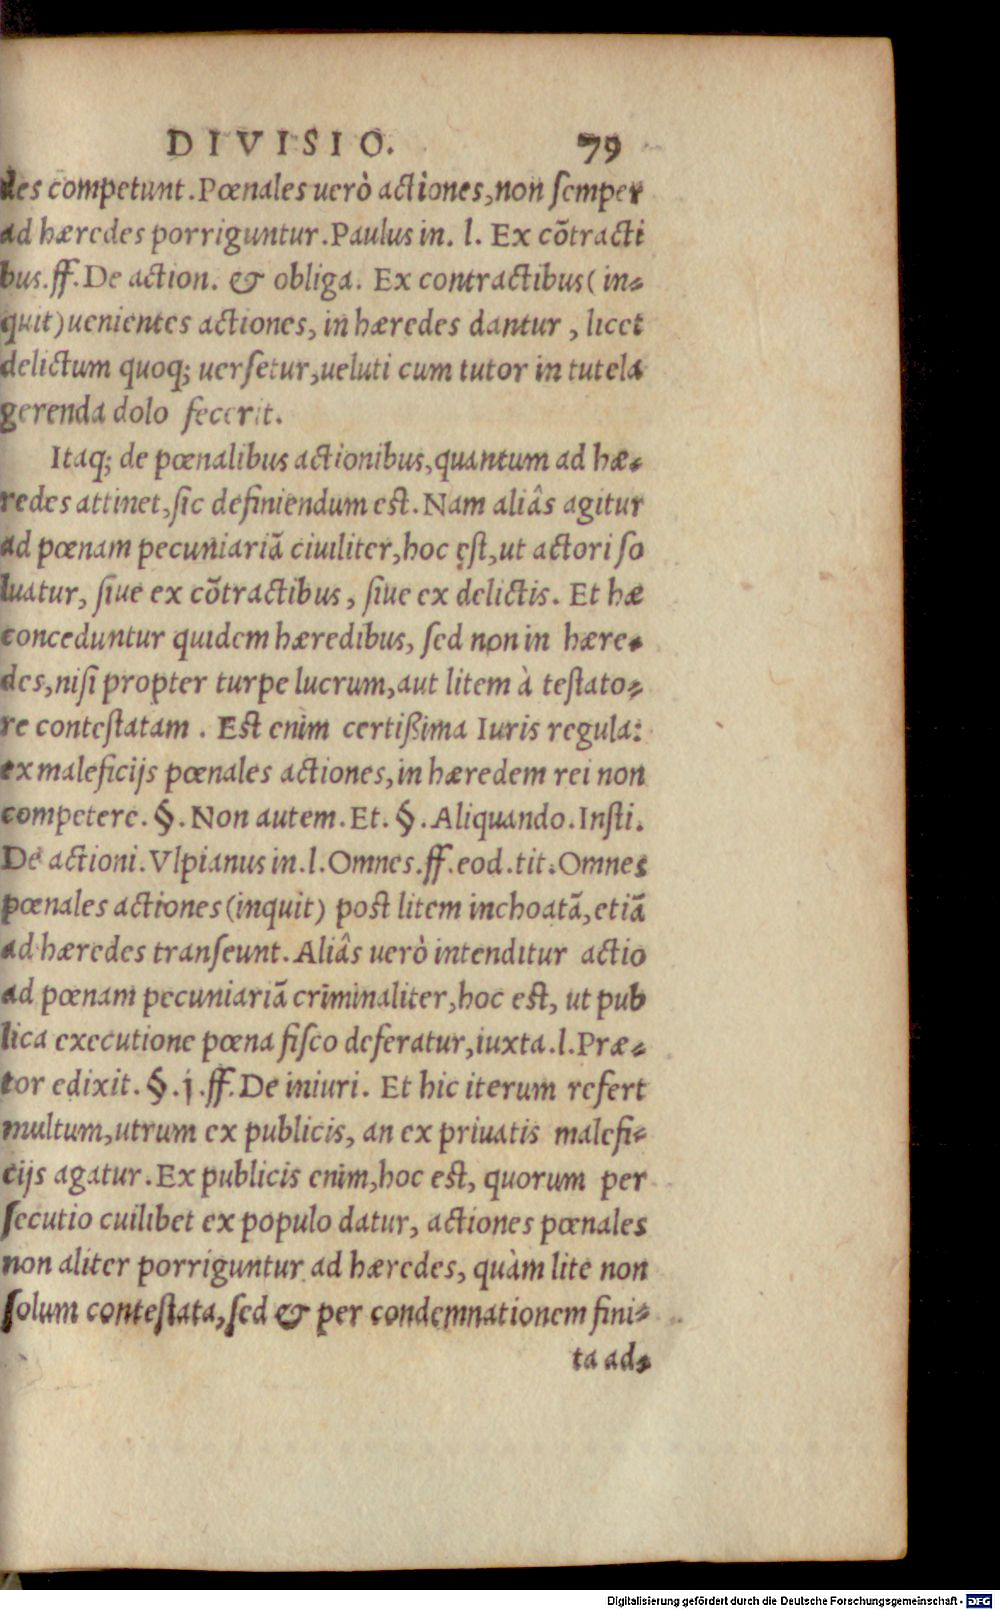 DIVISIO. 79
des competunt. Pœnales uerò actiones, non ſemper
ad hæredes porriguntur. Paulus in. l. Ex cõtracti
bus. ff. De action. & obliga. Ex contractibus (in-
quit) uenientes actiones, in hæredes dantur, licet
delictum quoq; uerſetur, ueluti cum tutor in tutela
gerenda dolo fecerit.
Itaq; de pœnalibus actionibus, quantum ad hæ-
redes attinet, ſic definiendum eſt. Nam aliâs agitur
ad pœnam pecuniariã ciuiliter, hoc eſt, ut actori ſo
luatur, ſiue ex cõtractibus, ſiue ex delictis. Et hæ
conceduntur quidem hæredibus, ſed non in hære-
des, niſi propter turpe lucrum, aut litem à teſtato-
re conteſtatam. Eſt enim certißima Iuris regula:
ex maleficijs pœnales actiones, in hæredem rei non
competere. §. Non autem. Et. §. Aliquando. Inſti.
De actioni. Vlpianus in. l. Omnes. ff. eod. tit. Omnes
pœnales actiones (inquit) poſt litem inchoatã, etiã
ad hæredes tranſeunt. Aliâs uerò intenditur actio
ad pœnam pecuniariã criminaliter, hoc eſt, ut pub
lica executione pœna fiſco deferatur, iuxta. l. Præ-
tor edixit. §. j. ff. De iniuri. Et hic iterum refert
multum, utrum ex publicis, an ex priuatis malefi-
cijs agatur. Ex publicis enim, hoc eſt, quorum per
ſecutio cuilibet ex populo datur, actiones pœnales
non aliter porriguntur ad hæredes, quàm lite non
ſolum conteſtata, ſed & per condemnationem fini-
ta ad-
Digitalisierung gefördert durch die Deutsche Forschungsgemeinschaft - DFG